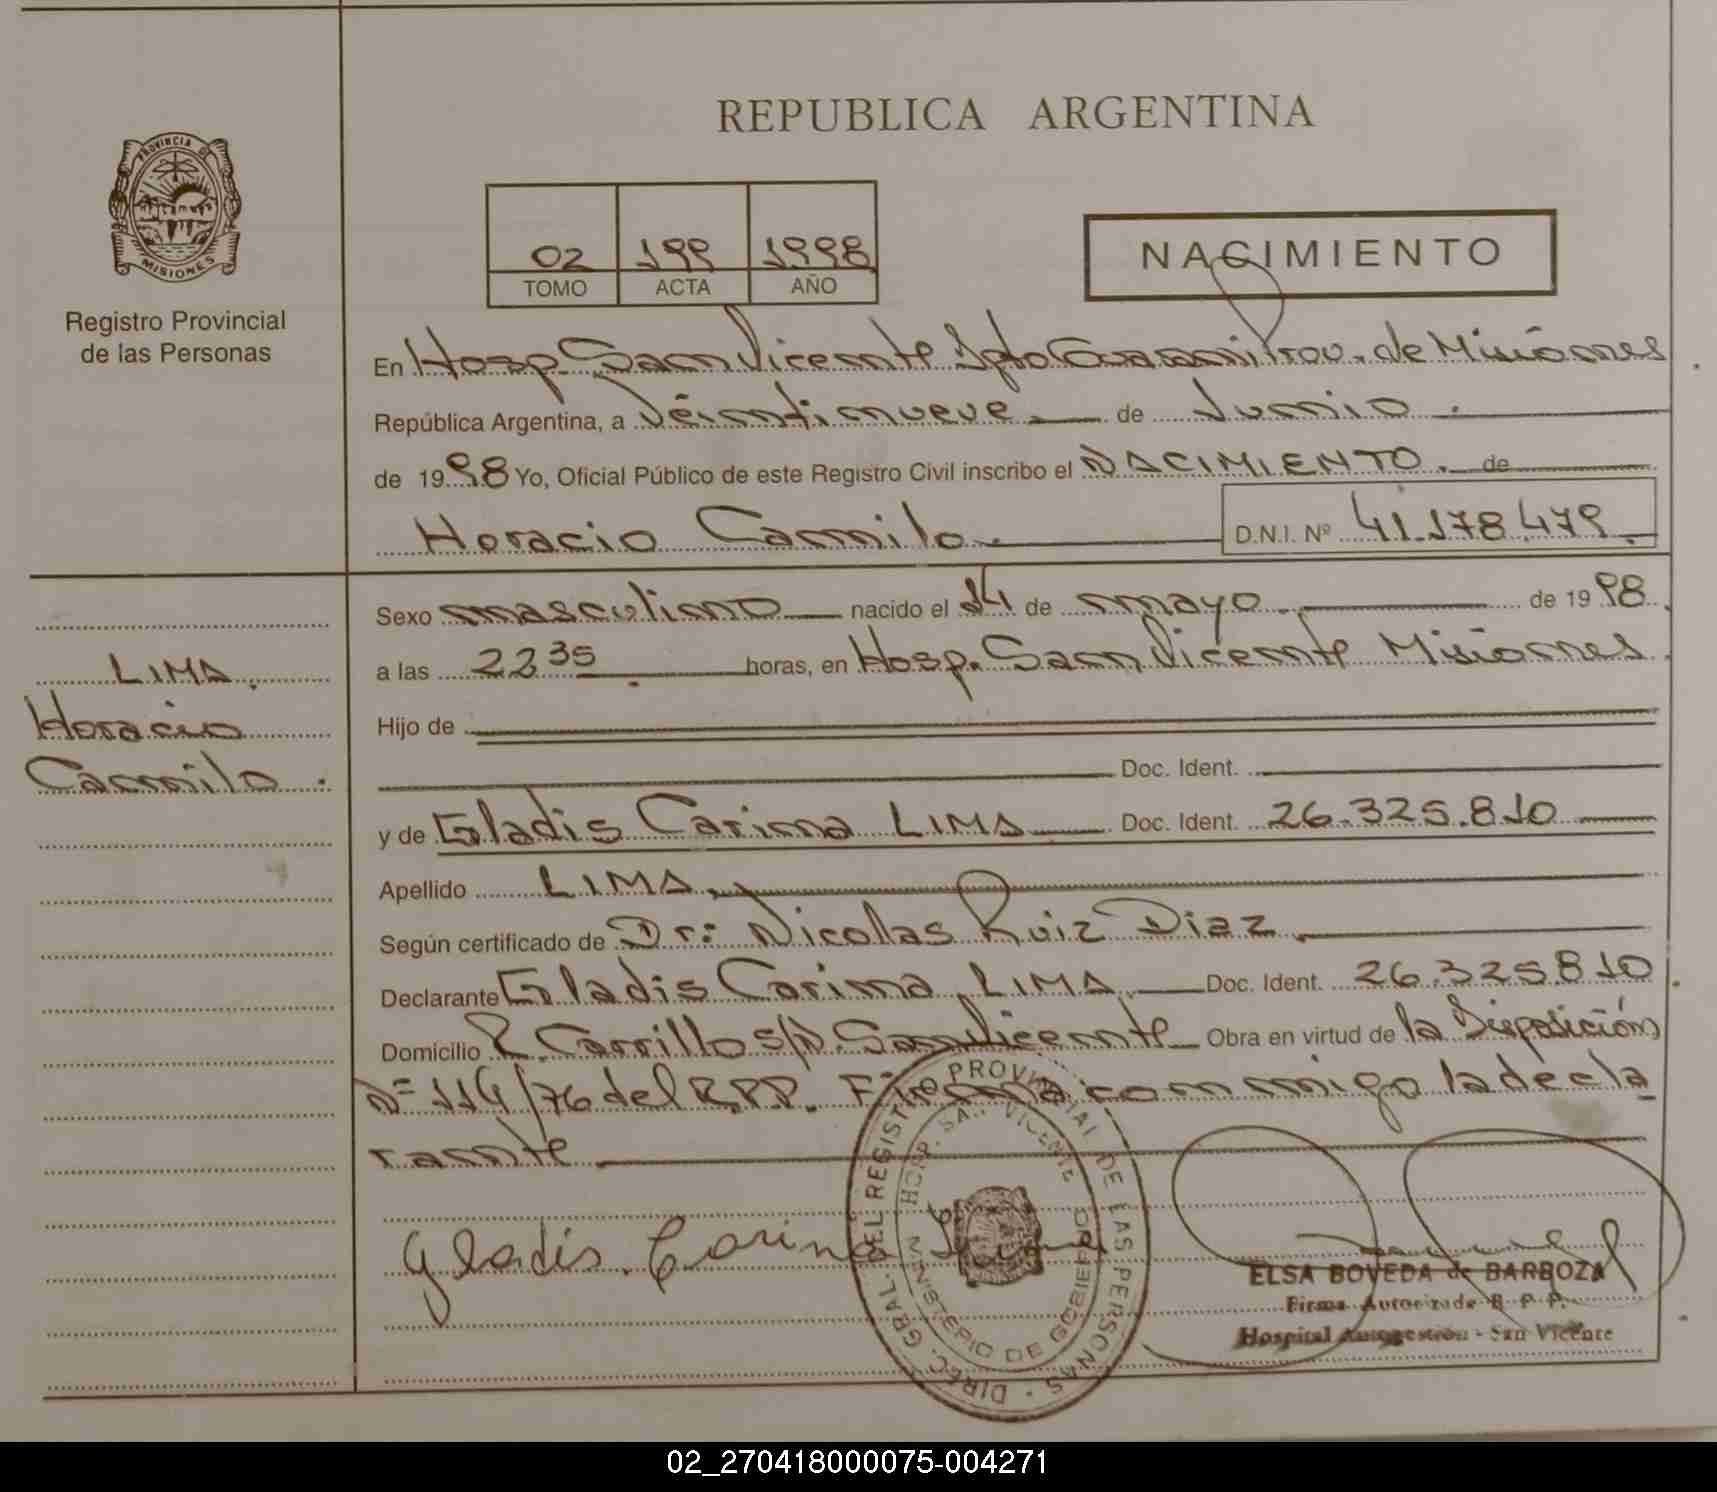 REPUBLICA ARGENTINA
PROVINCIA DE
MISIONES
Registro Provincial
de las Personas
02 199 1998
TOMO ACTA AÑO
NACIMIENTO
En Hosp. San Vicente Dpto Guarani Prov. de Misiones
República Argentina, a Veintinueve de Junio
de 1998 Yo, Oficial Público de este Registro Civil inscribo el NACIMIENTO. de
Horacio Camilo. D.N.I. Nº 41.178.479.
Sexo masculino nacido el 14 de mayo de 1998.
LIMA.
Horacio
Camilo.
a las 22 35 horas, en Hosp. San Vicente Misiones.
Hijo de
Doc. Ident.
y de Gladis Carina LIMA Doc. Ident. 26.325.810
Apellido LIMA.
Según certificado de Dr: Nicolas Ruiz Diaz.
Declarante Gladis Carina LIMA. Doc. Ident. 26.325.810.
Domicilio R. Carrillo s/N. San Vicente Obra en virtud de la Disposición
Nº 114/76 del R.P.P. Firma conmigo la decla
rante
Gladis. Corina
DIREC. GRAL. DEL REGISTRO PROVINCIAL DE LAS PERSONAS
HOSP. SAN VICENTE
MINISTERIO DE GOBIERNO
ELSA BOVEDA de BARBOZA
Firma Autorizada R. P. P.
Hospital Autogestión - San Vicente
02_270418000075-004271